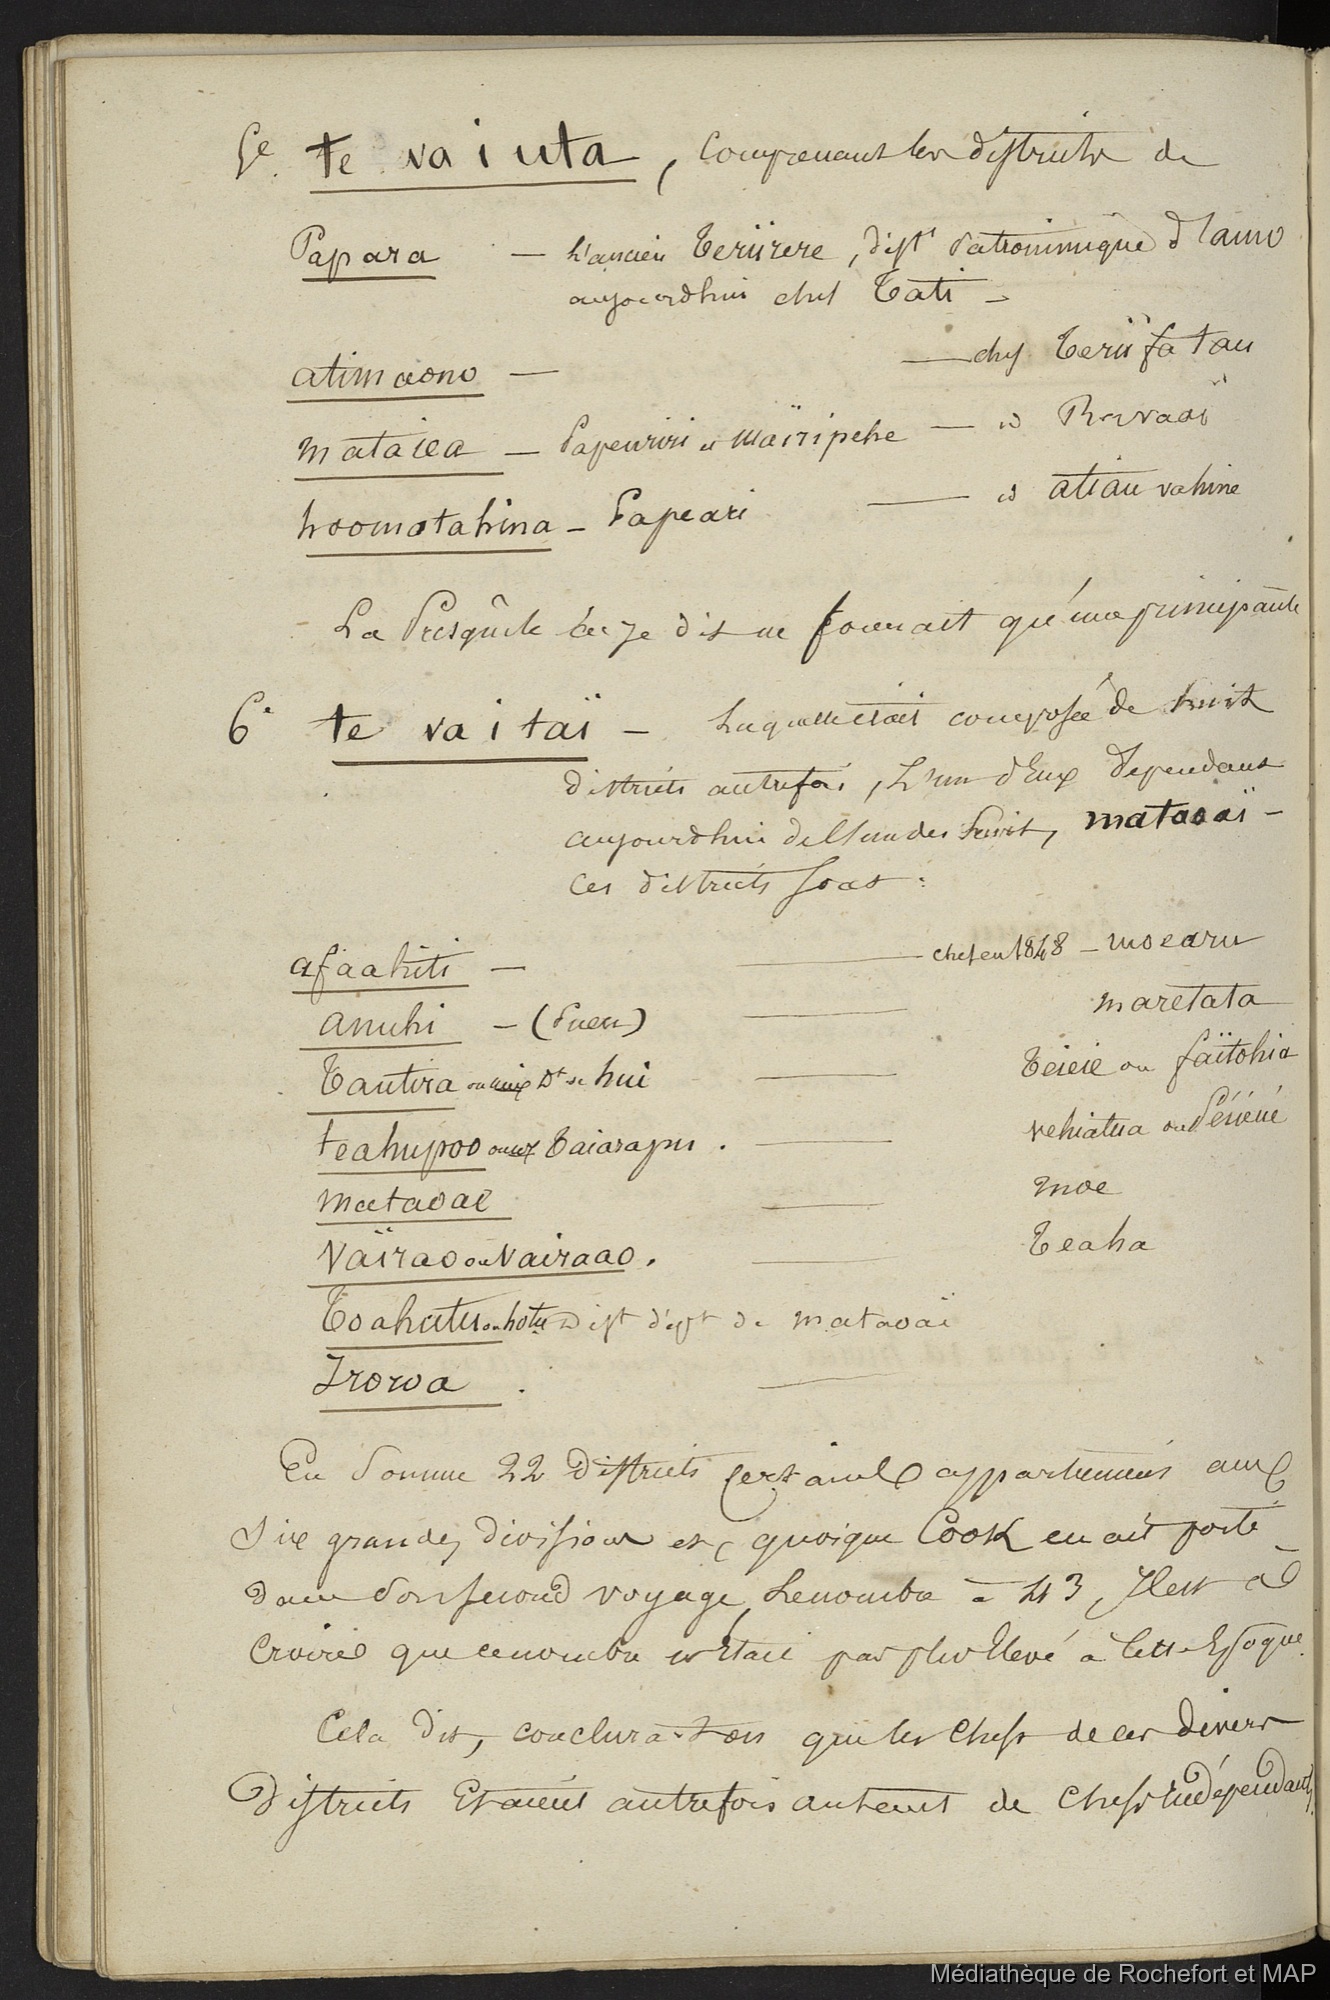 5e. te vai uta, comprenant les districts de
Papara — L'ancien Teriirere, dist^t Patronimique d'amo
aujourdhui chef Tati —
atimaono — — chef Teriifatau
mataiea — Papeuriri et Maïripehe — id
hoomotahina — Papeari — id atiau vahine
La Presqu'ile ai-je dit ne formait qu'une principauté
6e te vai taï — Laquelle était composée de huit
districts autrefois, L'un d'Eux dependant
aujourdhui de l'un des huit, mataoaï —
Ces districts sont :
afaahiti — — chef en 1848 — moearu
anuhi — (Pueu) — maretata
Tautira ou D^t de hui — Teieie ou faïtohia
teahupoo ou Taiarapu. — vehiatua ou Péüeüé
mataoae — moe
Vaïrao ou Vairaao. — Teaha
Toahutu ou hotu Dist dép^t de mataoaï
Iroroa . —
En Somme 22 Districts appartenaient aux
Six grandes divisions et, quoique Cook en ait porté
dans Son second voyage, Le nombre à 43, Il est à
Croire que ce nombre n'était pas plus Elevé à cette Epoque.
Cela dit, conclura-t-on que les Chefs de ces divers
Districts Etaient autrefois autant de Chefs Indépendants,
Médiathèque de Rochefort et MAP